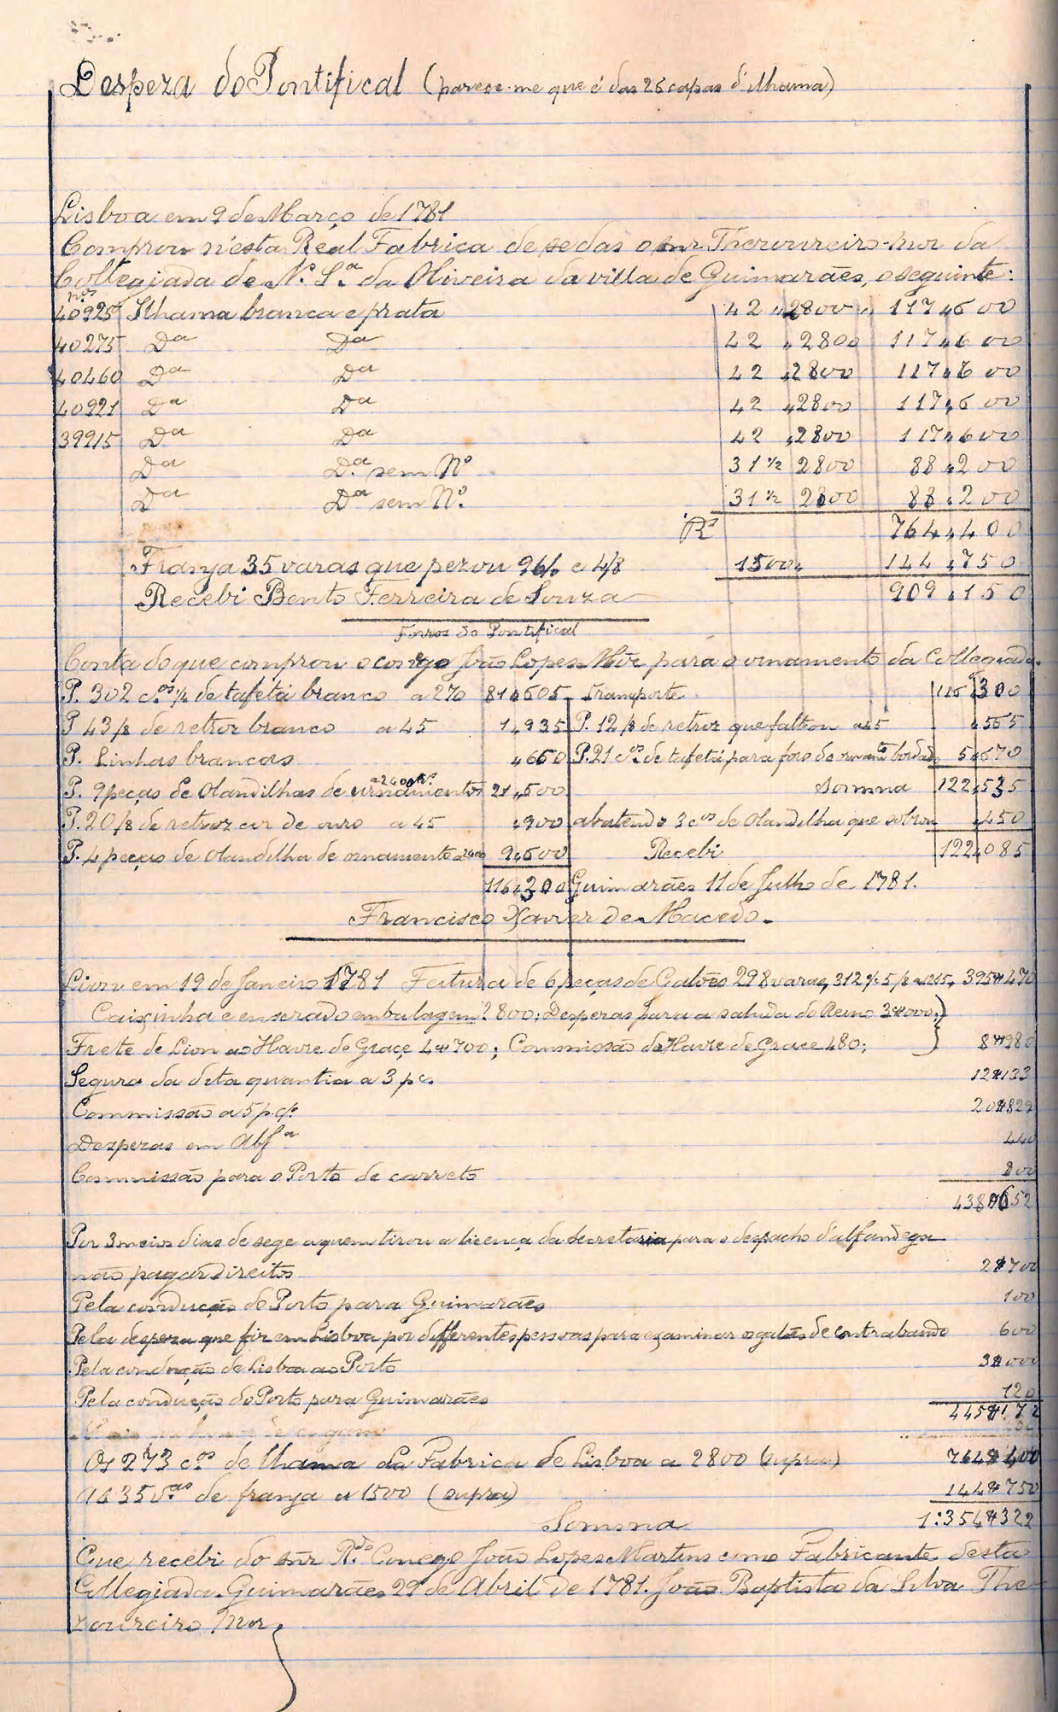 Despeza do Pontifical (parece-me que é das 26 capas d'ilhama)
Lisboa em 9 de Março de 1781
Comprou n'esta Real Fabrica de sedas o snr Thezoureiro-mor da
Collegiada de N.ª S.ª da Oliveira da villa de Guimarães, o seguinte:
n.os
40925 Ilhama branca e prata 42 2800 117,600
40275 Dª Dª 42 2800 117,600
40460 Dª Dª 42 2800 117,600
40921 Dª Dª 42 2800 117,600
39915 Dª Dª 42 2800 117,600
Dª Dª sem Nº 31 1/2 2800 88,200
Dª Dª sem Nº 31 1/2 2800 88,200
Rs 764,400
Franja 35 varas que pezou 96/8 e 4/8 1500 144,750
Recebi Bento Ferreira de Souza 909,150
Forros do Pontifical
Conta do que comprou o conego João Lopes Mĩz para o ornamento da Collegiada.
P. 302 c.os 1/2 de tafetá branco a 270 81,605 Transporte 116,300
P 43/8 de retroz branco a 45 1,935 P. 12/8 de retroz que faltou a 45 ,555
P. Linhas brancas ,660 P. 21 c.os de tafetá para fors do bordado 5,670
P. 9 peças de Olandilhas de ornamentos a 2400 rs 21,600 Somma 122,535
P. 20/8 de retroz cor de ouro a 45 ,900 abatendo 3 c.os de Olandilha que sobrou ,450
P. 4 peças de olandilha de ornamento a 2400 9,600 Recebi 122,085
116,300 Guimarães 11 de Julho de 1781.
Francisco Xavier de Macedo.
Lion em 19 de Janeiro 1781 Fatura de 6 peças de Galões 298 varas, 312 1215, 395#470
Caixinha e enserado embalagem 2800; Despezas para a sahida do Reino 3#000;
Frete de Lion ao Havre de Grace 4#700; Commissão do Havre de Grace 480; 8#980
Seguro da dita quantia a 3 p c. 12#133
Commissão a 5 p. c/o 20#829
Despezas em Alfª 440
Commissão para o Porto de carreto 800
438#652
Por 3 meios dias de sege a quem tirou a licença da Secretaria para o despacho d'alfandega
não pagar direitos 2#700
Pela conducção do Porto para Guimarães 100
Pela despeza que fiz em Lisboa por differentes pessoas para examinar os galões de contrabando 600
Pela conducção de Lisboa ao Porto 3#000
Pela conducção do Porto para Guimarães 120
445#172
Os 273 c.os de lhama da Fabrica de Lisboa a 2800 (supra) 764#400
As 35 v.as de franja a 1500 (supra) 144#750
Somma 1:354#322
Que recebi do snr R.do Conego João Lopes Martins como Fabricante desta
Collegiada. Guimarães 29 de Abril de 1781. João Baptista da Silva The
zoureiro Mor,